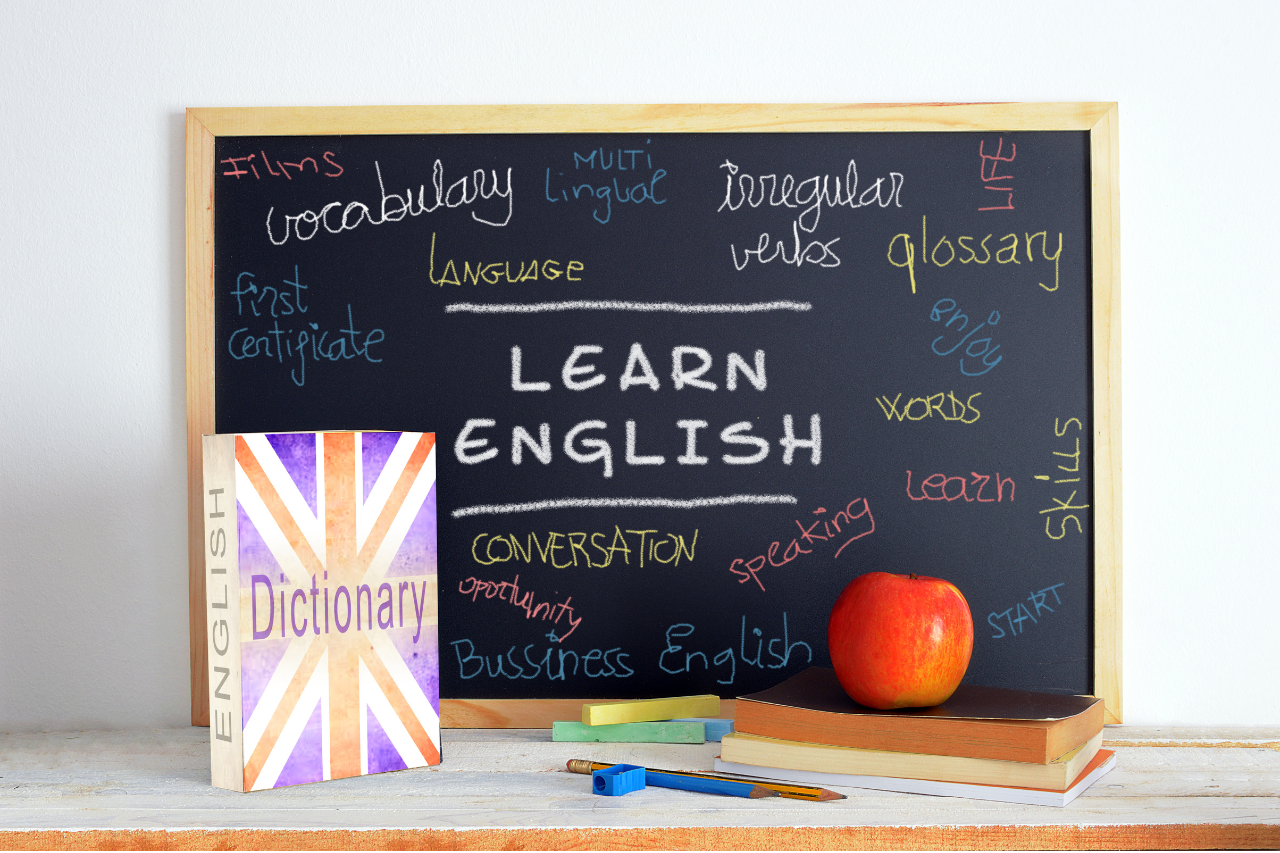 Films
vocabulary
MULTi
lingual
irregular
verbs
LIFE
LANGUAGE
glossary
first
certificate
enjoy
LEARN
ENGLISH
WORDS
Learn
Skills
CONVERSATION
speaking
oportunity
Bussiness English
START
ENGLISH
Dictionary